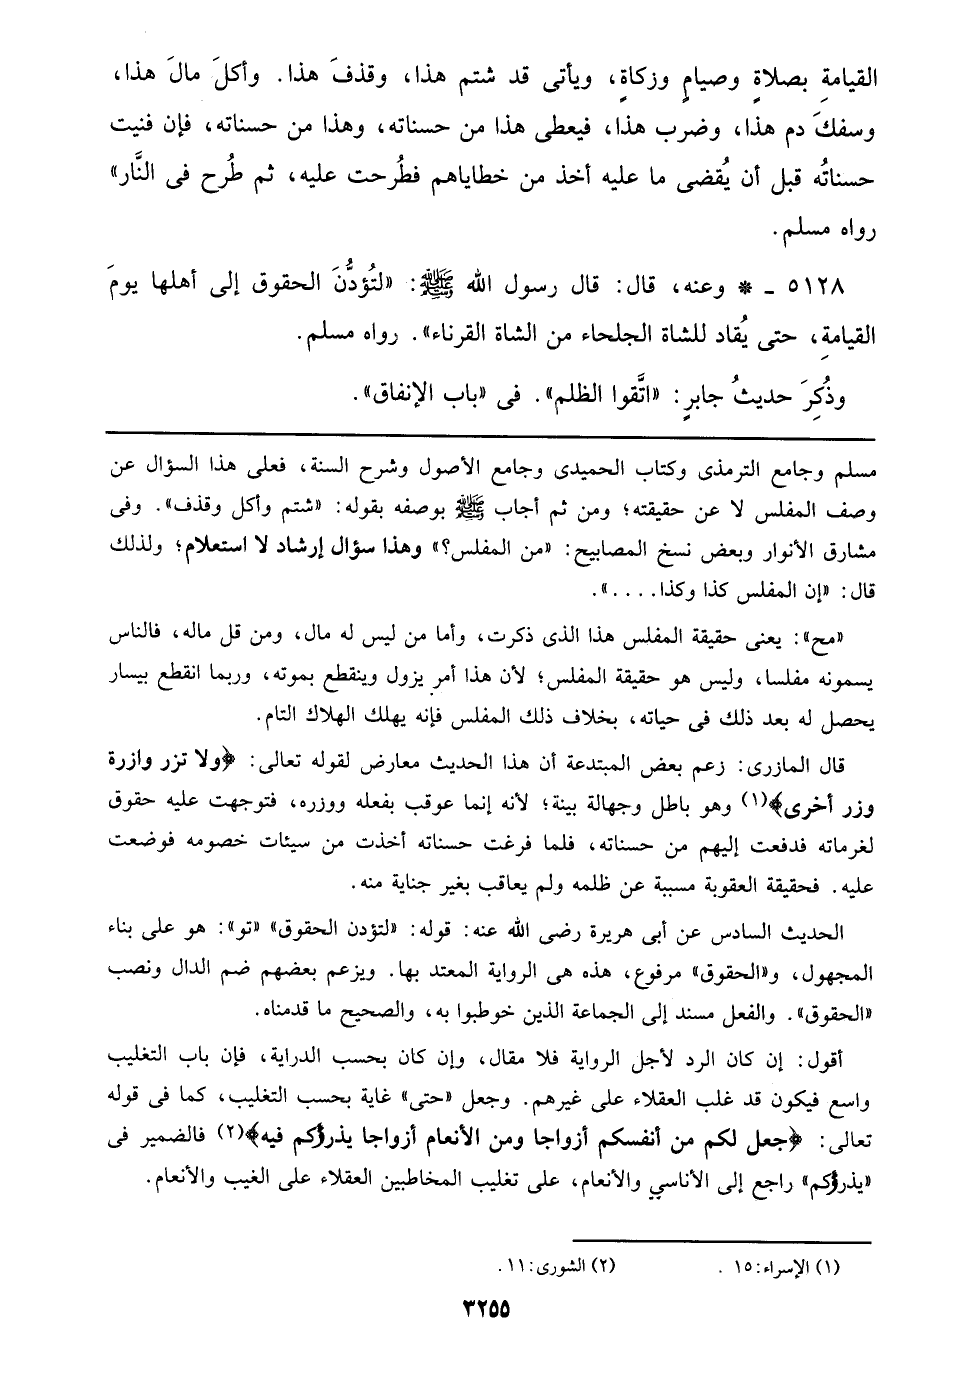 القيامةِ بصلاةٍ وصيامٍ وزكاةٍ، ويأتى قد شتم هذا، وقذفَ هذا. وأكلَ مالَ هذا،
وسفكَ دم هذا، وضرب هذا، فيعطى هذا من حسناته، وهذا من حسناته، فإن فنيت
حسناتُه قبل أن يُقضى ما عليه أخذ من خطاياهم فطُرحت عليه، ثم طُرح فى النَّار»
رواه مسلم.
٥١٢٨ - * وعنه، قال: قال رسول الله ﷺ: «لتُؤدُّنَ الحقوق إلى أهلها يومَ
القيامةِ، حتى يُقاد للشاة الجلحاء من الشاة القرناء». رواه مسلم.
وذُكِرَ حديثُ جابرٍ: «اتَّقوا الظلم». فى «باب الإنفاق».
مسلم وجامع الترمذى وكتاب الحميدى وجامع الأصول وشرح السنة، فعلى هذا السؤال عن
وصف المفلس لا عن حقيقته؛ ومن ثم أجاب ﷺ بوصفه بقوله: «شتم وأكل وقذف». وفى
مشارق الأنوار وبعض نسخ المصابيح: «من المفلس؟» وهذا سؤال إرشاد لا استعلام؛ ولذلك
قال: «إن المفلس كذا وكذا....».
«مح»: يعنى حقيقة المفلس هذا الذى ذكرت، وأما من ليس له مال، ومن قل ماله، فالناس
يسمونه مفلسا، وليس هو حقيقة المفلس؛ لأن هذا أمر يزول وينقطع بموته، وربما انقطع بيسار
يحصل له بعد ذلك فى حياته، بخلاف ذلك المفلس فإنه يهلك الهلاك التام.
قال المازرى: زعم بعض المبتدعة أن هذا الحديث معارض لقوله تعالى: ﴿ولا تزر وازرة
وزر أخرى﴾(١) وهو باطل وجهالة بينة؛ لأنه إنما عوقب بفعله ووزره، فتوجهت عليه حقوق
لغرمائه فدفعت إليهم من حسناته، فلما فرغت حسناته أخذت من سيئات خصومه فوضعت
عليه. فحقيقة العقوبة مسببة عن ظلمه ولم يعاقب بغير جناية منه.
الحديث السادس عن أبى هريرة رضى الله عنه: قوله: «لتؤدن الحقوق» «تو»: هو على بناء
المجهول، و«الحقوق» مرفوع، هذه هى الرواية المعتد بها. ويزعم بعضهم ضم الدال ونصب
«الحقوق». والفعل مسند إلى الجماعة الذين خوطبوا به، والصحيح ما قدمناه.
أقول: إن كان الرد لأجل الرواية فلا مقال، وإن كان بحسب الدراية، فإن باب التغليب
واسع فيكون قد غلب العقلاء على غيرهم. وجعل «حتى» غاية بحسب التغليب، كما فى قوله
تعالى: ﴿جعل لكم من أنفسكم أزواجا ومن الأنعام أزواجا يذرؤكم فيه﴾(٢) فالضمير فى
«يذرؤكم» راجع إلى الأناسي والأنعام، على تغليب المخاطبين العقلاء على الغيب والأنعام.
(١) الإسراء: ١٥ . (٢) الشورى: ١١.
٣٢٥٥